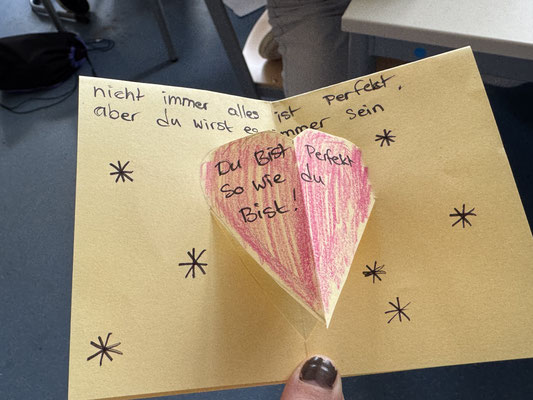 nicht immer alles ist perfekt,
aber du wirst es immer sein
Du Bist Perfekt
so wie du
Bist!